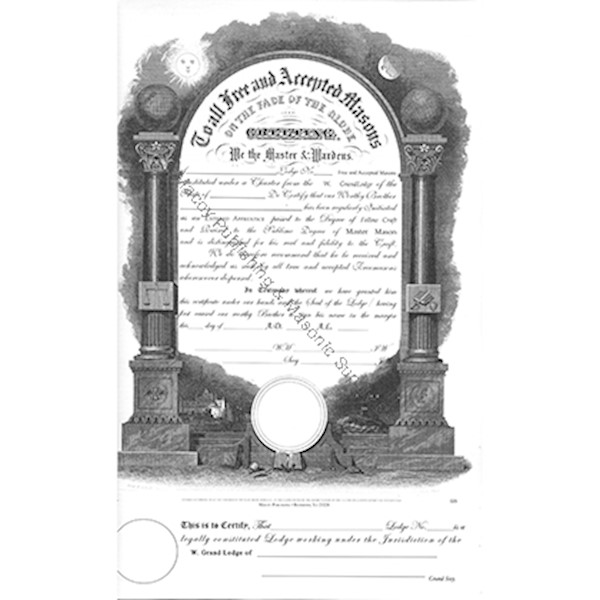 To all Free and Accepted Masons
ON THE FACE OF THE GLOBE
GREETING.
We the Master & Wardens
of Lodge No. Free and Accepted Masons
constituted under a Charter from the W. Grand Lodge of the
Do Certify that our Worthy Brother
has been regularly Initiated
as an Entered Apprentice passed to the Degree of Fellow Craft
and to the Sublime Degree of Master Mason
and is distinguished for his zeal and fidelity to the Craft.
We do therefore recommend that he be received and
acknowledged as such by all true and accepted Freemasons
wheresoever dispersed.
In Testimony whereof we have granted him
this certificate under our hands and the Seal of the Lodge (having
first caused our worthy Brother to sign his name in the margin
this day of A.D. A.L.
W.M. J.W.
Secy
Macoy Publishing & Masonic Su
Macoy Publishing • Richmond, Va 23228
This is to Certify, That Lodge No. is a
legally constituted Lodge working under the Jurisdiction of the
W. Grand Lodge of
Grand Secy.